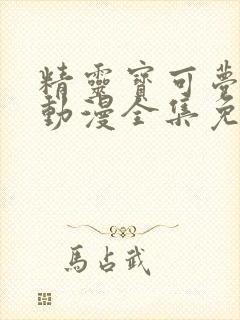 精靈寶可夢
動漫全集免
馬占武